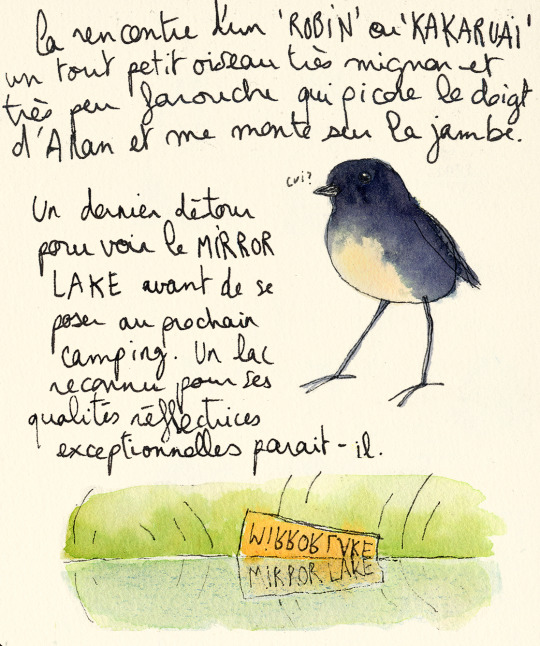 la rencontre d'un 'ROBIN' ou 'KAKARUAI'
un tout petit oiseau très mignon et
très peu farouche qui picore le doigt
d'Alan et me monte sur la jambe.
cui?
Un dernier détour
pour voir le MIRROR
LAKE avant de se
poser au prochain
camping. Un lac
reconnu pour ses
qualités réflectrices
exceptionnelles parait-il.
MIRROR LAKE
MIRROR LAKE